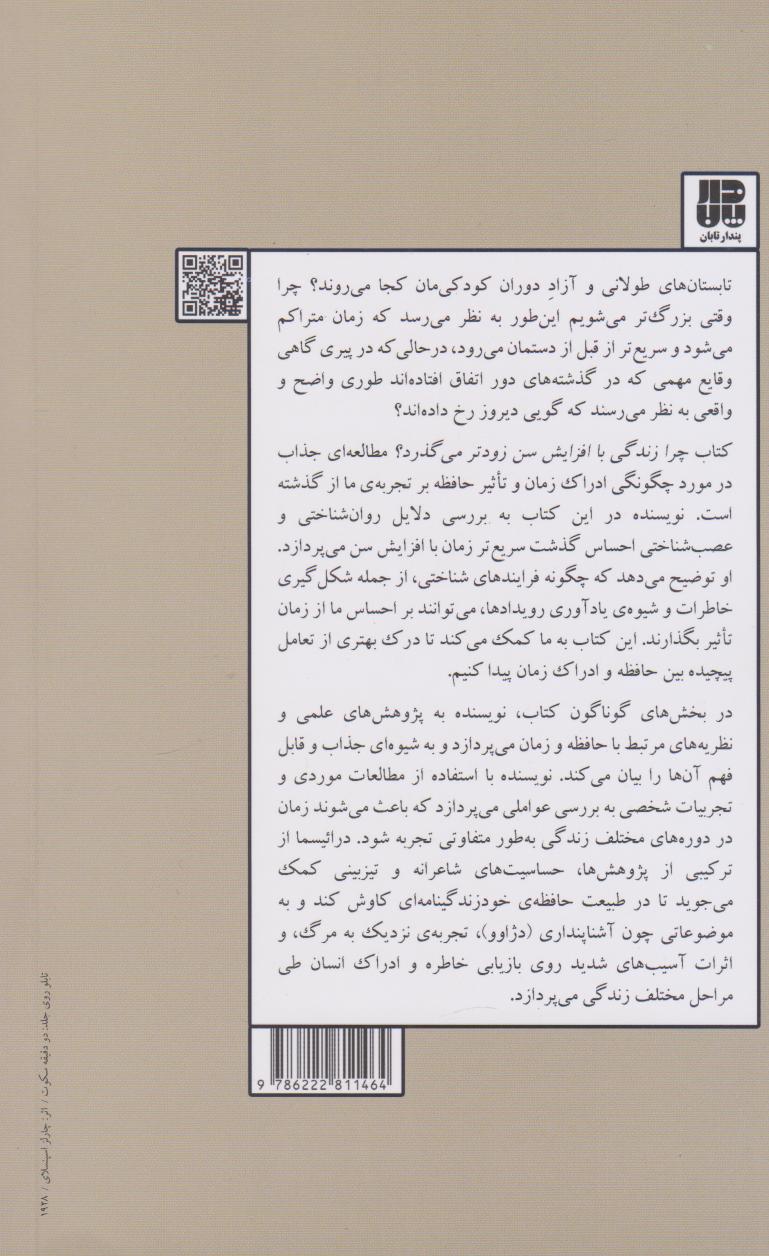 پندار تابان
تابستان‌های طولانی و آزادِ دوران کودکی‌مان کجا می‌روند؟ چرا
وقتی بزرگ‌تر می‌شویم این‌طور به نظر می‌رسد که زمان متراکم
می‌شود و سریع‌تر از قبل از دستمان می‌رود، درحالی‌که در پیری گاهی
وقایع مهمی که در گذشته‌های دور اتفاق افتاده‌اند طوری واضح و
واقعی به نظر می‌رسند که گویی دیروز رخ داده‌اند؟
کتاب چرا زندگی با افزایش سن زودتر می‌گذرد؟ مطالعه‌ای جذاب
در مورد چگونگی ادراک زمان و تأثیر حافظه بر تجربه‌ی ما از گذشته
است. نویسنده در این کتاب به بررسی دلایل روان‌شناختی و
عصب‌شناختی احساس گذشت سریع‌تر زمان با افزایش سن می‌پردازد.
او توضیح می‌دهد که چگونه فرایندهای شناختی، از جمله شکل‌گیری
خاطرات و شیوه‌ی یادآوری رویدادها، می‌توانند بر احساس ما از زمان
تأثیر بگذارند. این کتاب به ما کمک می‌کند تا درک بهتری از تعامل
پیچیده بین حافظه و ادراک زمان پیدا کنیم.
در بخش‌های گوناگون کتاب، نویسنده به پژوهش‌های علمی و
نظریه‌های مرتبط با حافظه و زمان می‌پردازد و به شیوه‌ای جذاب و قابل
فهم آن‌ها را بیان می‌کند. نویسنده با استفاده از مطالعات موردی و
تجربیات شخصی به بررسی عواملی می‌پردازد که باعث می‌شوند زمان
در دوره‌های مختلف زندگی به‌طور متفاوتی تجربه شود. درائیسما از
ترکیبی از پژوهش‌ها، حساسیت‌های شاعرانه و تیزبینی کمک
می‌جوید تا در طبیعت حافظه‌ی خودزندگینامه‌ای کاوش کند و به
موضوعاتی چون آشناپنداری (دژاوو)، تجربه‌ی نزدیک به مرگ، و
اثرات آسیب‌های شدید روی بازیابی خاطره و ادراک انسان طی
مراحل مختلف زندگی می‌پردازد.
9 786222 811464
تابلو روی جلد: دو دقیقه سکوت / اثر: چارلز اسپنسلای / ۱۹۲۸